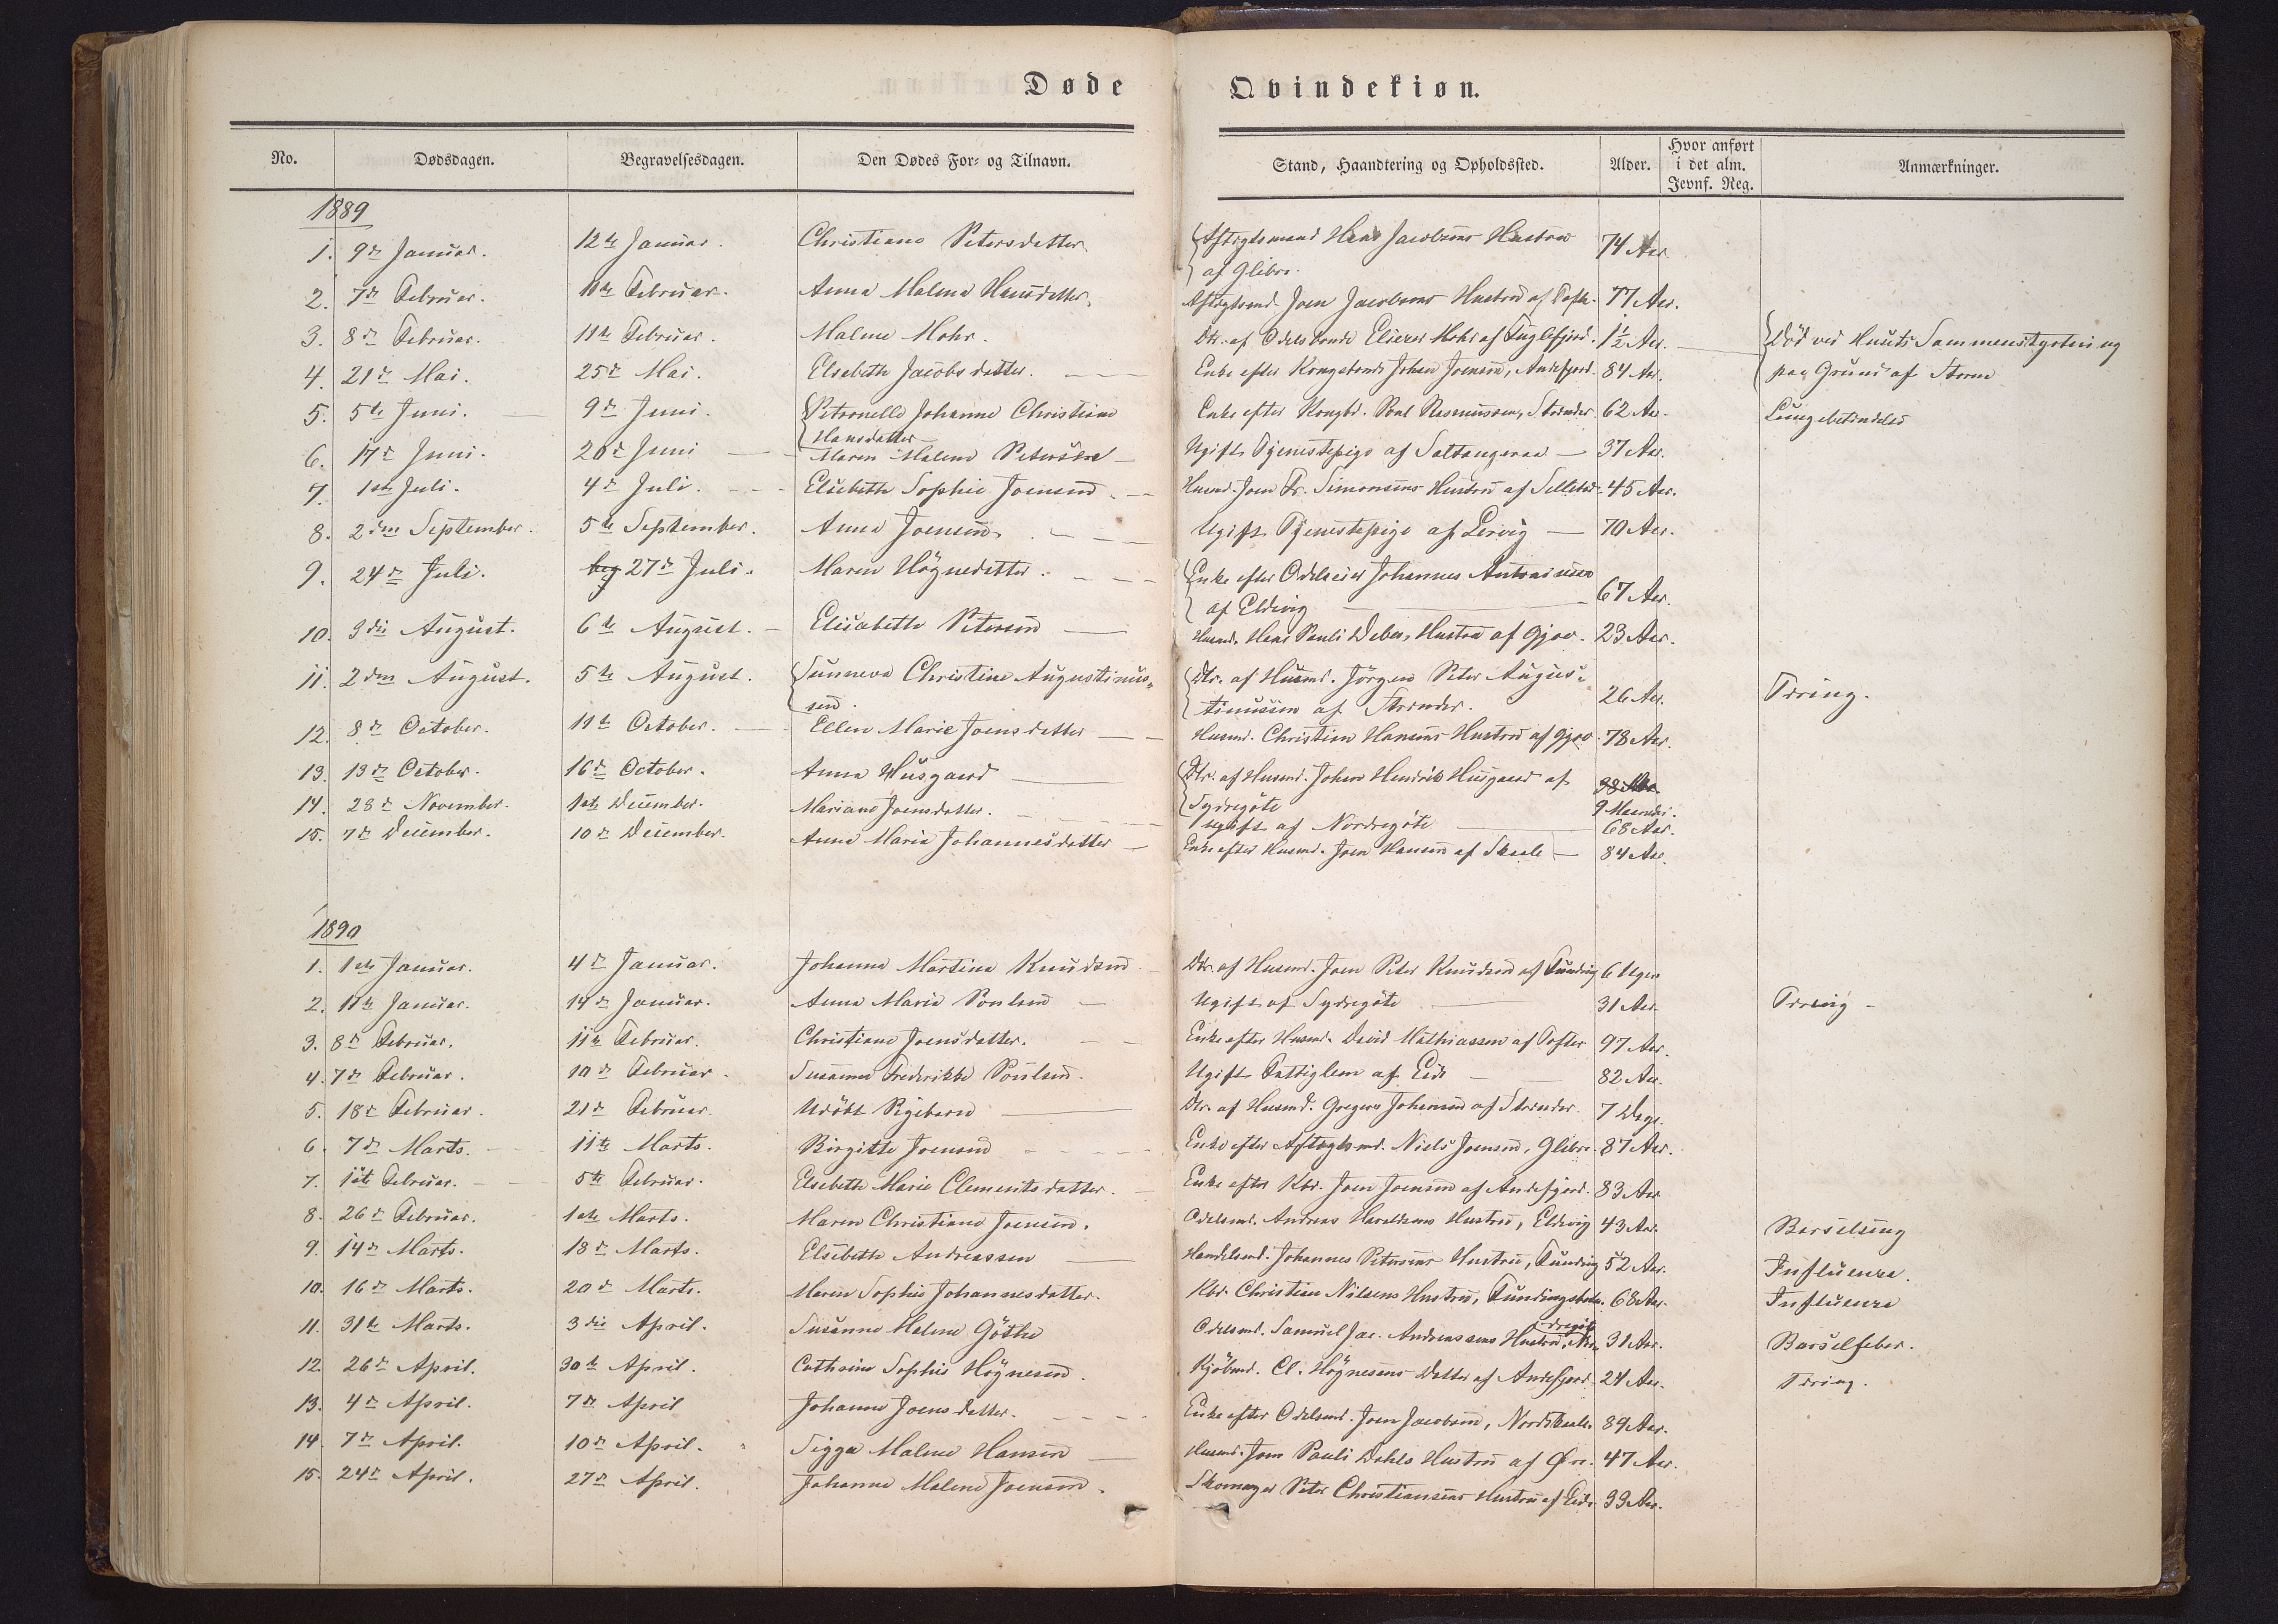 Døde Qvindekiøn.
No. Dødsdagen. Begravelsesdagen. Den Dødes For- og Tilnavn. Stand, Haandtering og Opholdssted. Alder. Hvor anført i det alm. Jevnf. Reg. Anmærkninger.
1889
1. 9de Januar. 12te Januar. Christiane Petersdatter. Aftægtsmand Hans Jacobsens Hustru 74 Aar.
af Glibre.
2. 7de Februar. 11te Februar. Anna Malene Hansdatter. Aftægtsmd. Joen Jacobsens Hustru af 77 Aar.
3. 8de Februar. 11te Februar. Malene Mohr. Dtr. af Odelsbonde Elieser Mohr af Fuglefjord. 1½ Aar. Död ved Husets Sammenstyrtning
4. 21de Mai. 25de Mai. Elsebeth Jacobsdatter. Enke efter Kongsbonde Johan Joensen, Andefjord. 84 Aar. paa Grund af Storm
5. 5te Juni. 9de Juni. Petronelle Johanne Christiane Enke efter Kongsbd. Poul Rasmussen, Strender. 62 Aar. Lungebetændelse
Hansdatter
6. 17de Juni. 20de Juni Maren Malene Petersen Ugift Tjenestepige af Saltangeraa 37 Aar.
7. 1ste Juli. 4de Juli. Elsebeth Sophie Joensen. Husmd. Joen Fr. Simonsens Hustru af Selletræ 45 Aar.
8. 2den September. 5te September. Anna Joensen. Ugift Tjenestepige af Lervig 70 Aar.
9. 24de Juli. beg 27de Juli. Maren Högnedatter. Enke efter Odelseier Johannes Antonissen
af Eldevig 67 Aar.
10. 3die August. 6te August. Elisabeth Petersen Husmd. Hans Pauli Debes, Hustru af Gjov. 23 Aar.
11. 2den August. 5te August. Sunneva Christine Augustinus- Dtr. af Husmd. Jörgen Peter Augus-
sen. tinussen af Strender. 26 Aar. Tæring.
12. 8de October. 11te October. Ellen Marie Joensdatter Husmd. Christian Hansens Hustru af Gjov. 78 Aar.
13. 13de October. 16de October. Anna Husgaard Dtr. af Husmd. Johan Hendrik Husgaard af
Sydregöte 9 Maaneder.
14. 28de November. 1ste December. Mariane Joensdatter. Ugift af Nordregöte 68 Aar.
15. 7de December. 10de December. Anne Marie Johannesdatter Enke efter Husmd. Joen Hansen af Skaale 84 Aar.
1890
1. 1ste Januar. 4de Januar. Johanne Martine Knudsen Dtr. af Husmd. Joen Peter Knudsen af Funding 6 Uger
2. 11te Januar. 14de Januar. Anna Marie Poulsen Ugift af Sydregöte 31 Aar. Tæring
3. 8de Februar. 11te Februar. Christiane Joensdatter. Enke efter Husmd. David Mathiassen af Tofter 97 Aar.
4. 7de Februar. 10de Februar. Susanne Frederikke Poulsen. Ugift Fattiglem af Eide 82 Aar.
5. 18de Februar. 21de Februar. Udöbt Pigebarn Dtr. af Husmd. Gregers Johansen af Strender. 7 Dage.
6. 7de Marts. 11te Marts. Birgitte Joensen Enke efter Aftægtsmd. Niels Joensen, Glibre. 87 Aar.
7. 1ste Februar. 5te Februar. Elsebeth Marie Clementsdatter. Enke efter Kbd. Joen Joensen af Andefjord. 83 Aar
8. 26de Februar. 1ste Marts. Maren Christiane Joensen. Odelsmd. Andreas Haraldsens Hustru, Eldevig 43 Aar. Barselseng
9. 14de Marts. 18de Marts. Elsebeth Andreassen Handelsmd. Johannes Petersens Hustru, Funding 52 Aar. Influenza.
10. 16de Marts. 20de Marts. Maren Sophie Johannesdatter. Kbd. Christian Nilsens Hustru, Fundingsbotn. 68 Aar. Influenza
11. 31te Marts. 3die April. Susanne Malene Göthe Odelsmd. Samuel Jac. Andreassens Hustru, Nordregöte 31 Aar. Barselfeber.
12. 26de April. 30te April. Cathrine Sophie Högnesen. Kjöbmd. Cl. Högnesens Datter af Andefjord. 24 Aar. Tæring.
13. 4de April. 7de April Johanne Joensdatter. Enke efter Odelsmd. Joen Jacobsen, Nordskaale. 89 Aar.
14. 7de April. 10de April. Sigga Malene Hansen Husmd. Joen Pauli Dahls Hustru af Öre. 47 Aar.
15. 24de April. 27de April. Johanne Malene Joensen. Skomager Peter Christiansens Hustru af Eide. 33 Aar.